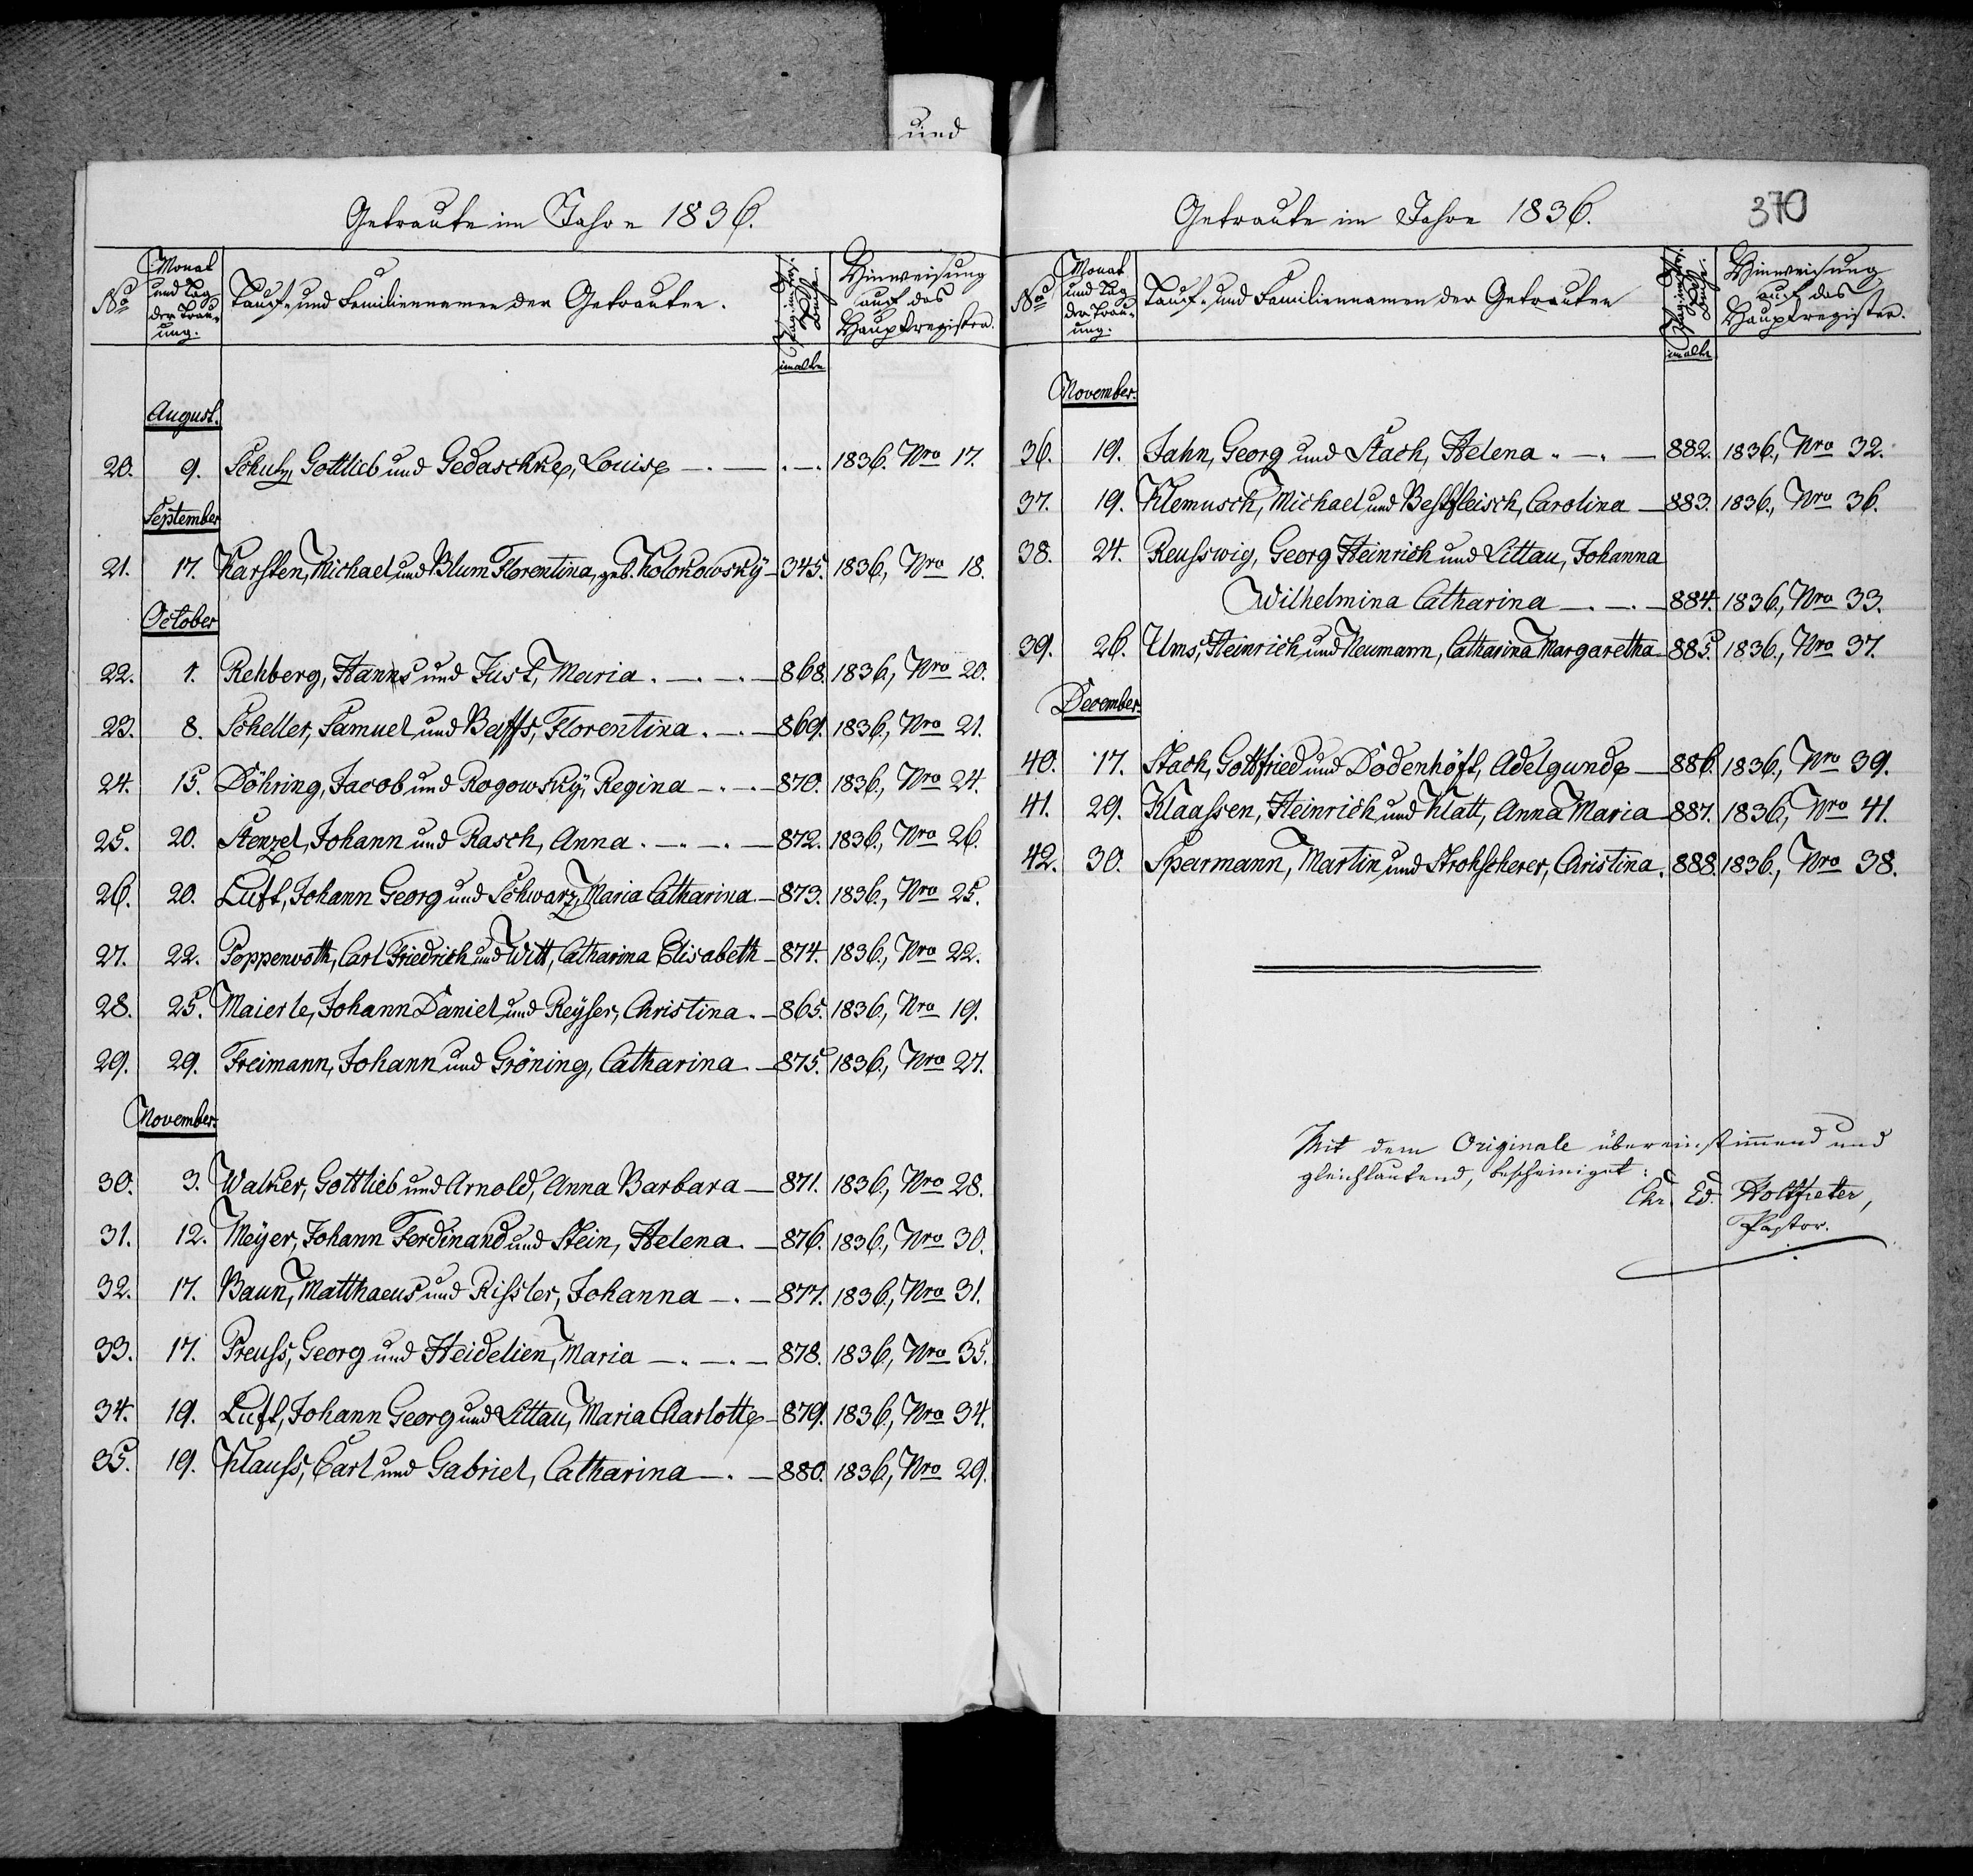 und
Getraute im Jahre 1836.
No
Monat und Tag der Trauung.
Tauf- und Familiennamen der Getrauten.
im alten
Hinweisung auf das Hauptregister.
August.
20. 9. Schulz, Gottlieb und Gedaschke, Louise —.—.—. 1836. Nro 17.
September
21. 17. Karsten, Michael und Blum Florentina, geb. Kolokowskÿ — 345. 1836., Nro 18.
October
22. 1. Rehberg, Hanns und Just, Maria. —.—.— 868. 1836., Nro 20.
23. 8. Scheller, Samuel und Florentina. —.— 869. 1836., Nro 21.
24. 15. Döhring, Jacob und Rogowskÿ, Regina —.—.— 870. 1836., Nro 24.
25. 20. Stenzel, Johann und Rasch, Anna. —.—.— 872. 1836., Nro 26.
26. 20. Luft, Johann Georg und Schwarz, Maria Catharina. — 873. 1836., Nro 25.
27. 22. Poppenroth, Carl Friedrich und Witt, Catharina Elisabeth — 874. 1836., Nro 22.
28. 25. Maierle, Johann Daniel und Reÿser, Christina. — 865. 1836., Nro 19.
29. 29. Freimann, Johann und Gröning, Catharina. — 875. 1836., Nro 27.
November.
30. 3. Walker, Gottlieb und Arnold, Anna Barbara — 871. 1836., Nro 28.
31. 12. Meÿer, Johann Ferdinand und Stein, Helena. — 876. 1836., Nro 30.
32. 17. Baun, Matthaeus und Rissler, Johanna —.— 877. 1836., Nro 31.
33. 17. Preuss, Georg und Heidelien, Maria —.—.— 878. 1836., Nro 35.
34. 19. Luft, Johann Georg und Littau, Maria Charlotte — 879. 1836., Nro 34.
35. 19. Klauss, Carl und Gabriel, Catharina —.— 880. 1836., Nro 29.
Getraute im Jahre 1836.
370
No
Monat und Tag der Trauung.
Tauf- und Familiennamen der Getrauten
im alten
Hinweisung auf das Hauptregister.
November.
36. 19. Jahn, Georg und Stach, Helena. —.— 882. 1836., Nro 32.
37. 19. Klemusch, Michael und Bestfleisch, Carolina — 883. 1836., Nro 36.
38. 24. Reusswig, Georg Heinrich und Littau, Johanna
Wilhelmina Catharina —.—.— 884. 1836., Nro 33.
39. 26. Ums, Heinrich und Neumann, Catharina Margaretha — 885. 1836., Nro 37.
December.
40. 17. Stach, Gottfried und Dodenhöft, Adelgunde — 886. 1836., Nro 39.
41. 29. Klaassen, Heinrich und Klatt, Anna Maria — 887. 1836., Nro 41.
42. 30. Sparmann, Martin und Strohscherer, Christina. 888. 1836., Nro 38.
Mit dem Originale übereinstimmend und
gleichlautend, bescheiniget:
Chr. Ed. Holtfreter,
Pastor.